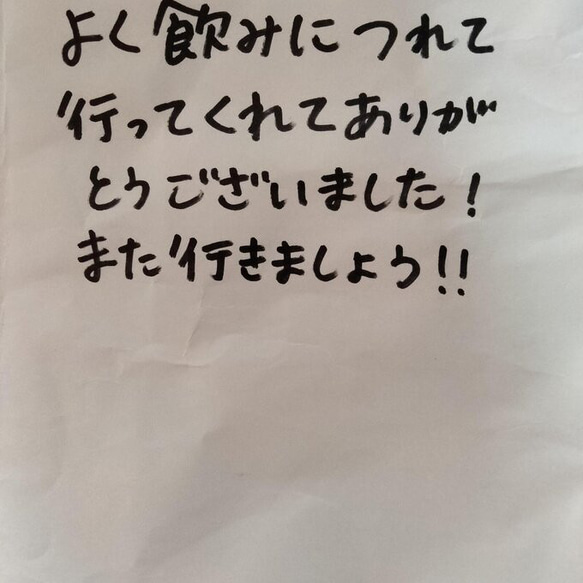 よく飲みにつれて
行ってくれてありが
とうございました!
また行きましょう!!